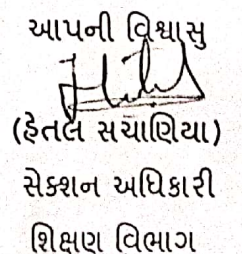 આપની વિશ્વાસુ
(હેતલ સચાણિયા)
સેક્શન અધિકારી
શિક્ષણ વિભાગ